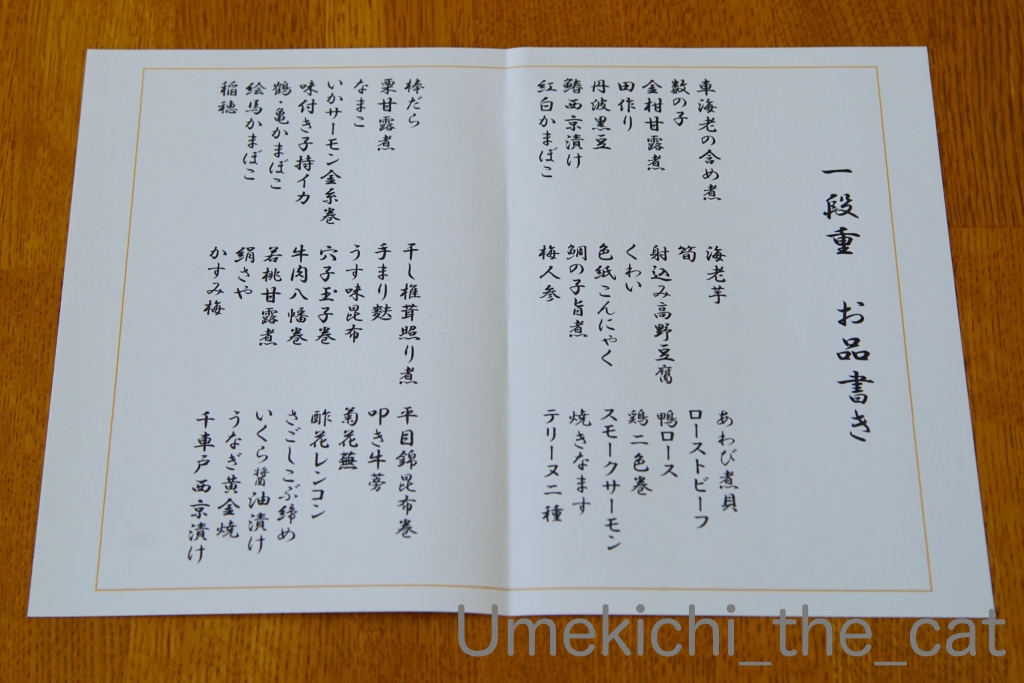 一段重 お品書き
車海老の含め煮
数の子
金柑甘露煮
田作り
丹波黒豆
鰆西京漬け
紅白かまぼこ
海老芋
筍
射込み高野豆腐
くわい
色紙こんにゃく
鯛の子旨煮
梅人参
あわび煮貝
ローストビーフ
鴨ロース
鶏二色巻
スモークサーモン
焼きなます
テリーヌ二種
棒だら
栗甘露煮
なまこ
いかサーモン金糸巻
味付き子持イカ
鶴・亀かまぼこ
絵馬かまぼこ
稲穂
干し椎茸照り煮
手まり麩
うす味昆布
穴子玉子巻
牛肉八幡巻
若桃甘露煮
絹さや
かすみ梅
平目錦昆布巻
叩き牛蒡
菊花蕪
酢花レンコン
さごしこぶ締め
いくら醤油漬け
うなぎ黄金焼
千車戸西京漬け
Umekichi_the_cat